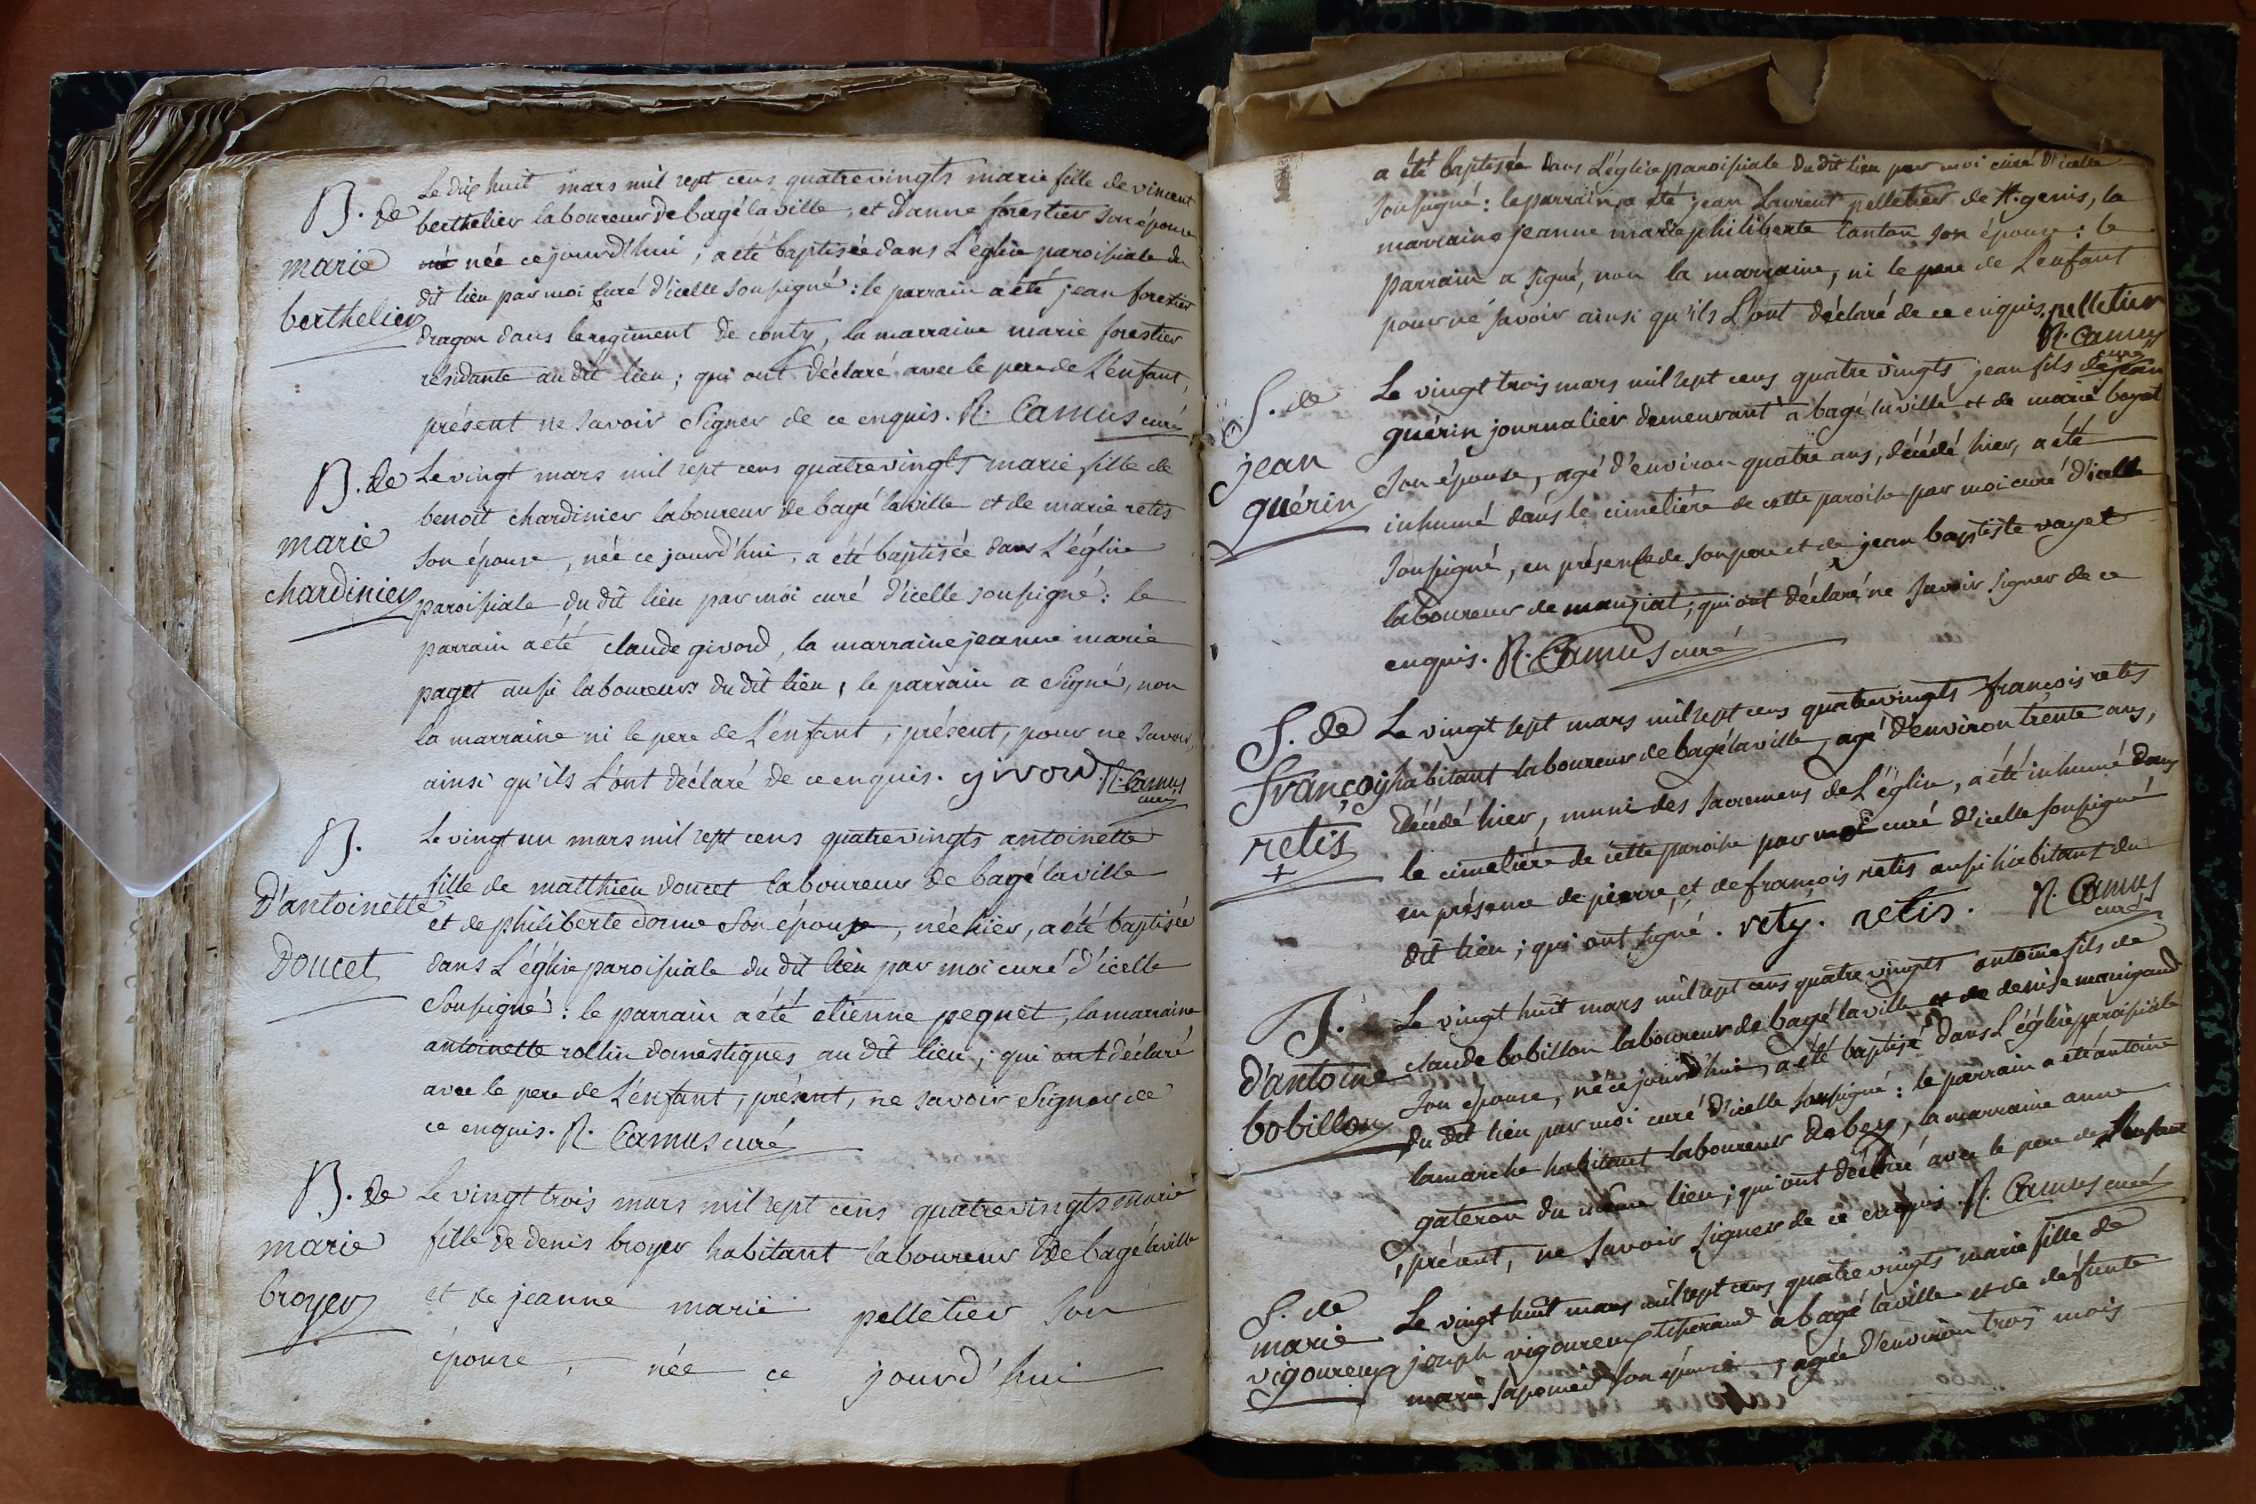 B. de
marie
berthelier
Le dix huit mars mil sept cens quatrevingts marie fille de vincent
berthelier laboureur de bagé la ville, et d'anne forestier son épouse
né née ce jourd'hui, a été baptisée dans L'église paroissiale du
dit lieu par moi curé d'icelle soussigné : le parrain a été jean forestier
dragon dans le regiment de conty, la marraine marie forestier
résidante au dit lieu ; qui ont déclaré avec le pere de L'enfant,
présent ne savoir signer de ce enquis. R. Camus curé
B. de
marie
chardinier
Le vingt mars mil sept cens quatrevingts marie fille de
benoit chardinier laboureur de bagé la ville et de marie retis
son épouse, née ce jourd'hui, a été baptisée dans L'église
paroissiale du dit lieu par moi curé d'icelle soussigné : le
parrain a été claude givord, la marraine jeanne marie
paget aussi laboureurs du dit lieu, le parrain a signé, non
la marraine ni le pere de L'enfant, présent, pour ne savoir,
ainsi qu'ils L'ont déclaré de ce enquis. givord. R. Camus
curé
B.
D'antoinette
Doucet
Le vingt un mars mil sept cens quatrevingts antoinette
fille de matthieu doucet laboureur de bagé la ville
et de philiberte dorme son épouse, née hier, a été baptisée
dans L'église paroissiale du dit lieu par moi curé d'icelle
soussigné : le parrain a été etienne pequet, la marraine
antoinette rollin domestiques au dit lieu ; qui ont déclaré
avec le pere de L'enfant, présent, ne savoir signer de
ce enquis. R. Camus curé
B. de
marie
broyer
Le vingt trois mars mil sept cens quatrevingts marie
fille de denis broyer habitant laboureur de bagé la ville
et de jeanne marie pelletier son
épouse, née ce jourd'hui
a été baptisée dans L'église paroissiale du dit lieu par moi curé d'icelle
soussigné : le parrain a été jean Laurent pelletier de st. genis, la
marraine jeanne marie philiberte tantan son épouse : le
parrain a signé, non la marraine, ni le pere de L'enfant
pour ne savoir ainsi qu'ils L'ont déclaré de ce enquis. pelletier
R. Camus
curé
S. de
jean
guérin
Le vingt trois mars mil sept cens quatre vingts jean fils de jean
guérin journalier demeurant à bagé la ville et de marie bayet
son épouse, agé d'environ quatre ans, décédé hier, a été
inhumé dans le cimetière de cette paroisse par moi curé d'icelle
soussigné, en présence de son pere et de jean baptiste vayet
laboureur de manziat ; qui ont déclaré ne savoir signer de ce
enquis. R. Camus curé
S. de
françois
retis
+
Le vingt sept mars mil sept cens quatrevingts françois retis
habitant laboureur de bagé la ville, agé d'environ trente ans,
décédé hier, muni des sacremens de L'église, a été inhumé dans
le cimetière de cette paroisse par moi curé d'icelle soussigné
en présence de pierre, et de françois retis aussi habitants du
dit lieu ; qui ont signé. rety. retis. R. Camus
curé
B.
d'antoine
bobillon
Le vingt huit mars mil sept cens quatre vingts antoine fils de
claude bobillon laboureur de bagé la ville et de denise manigand
son épouse, né ce jourd'hui, a été baptisé dans L'église paroissiale
du dit lieu par moi curé d'icelle soussigné : le parrain a été antoine
lamarche habitant laboureur de bey, la marraine anne
gateron du même lieu ; qui ont déclaré avec le pere de L'enfant
, présent, ne savoir signer de ce enquis. R. Camus curé
S. de
marie
vigoureux
Le vingt huit mars mil sept cens quatre vingts marie fille de
joseph vigoureux tisserand à bagé la ville et de défunte
marie son épouse, agée d'environ trois mois